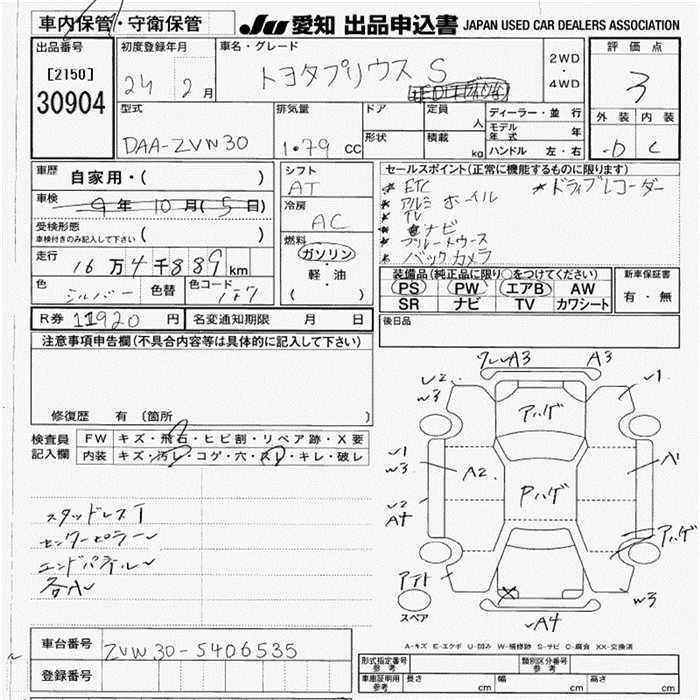 車内保管・守衛保管
JU 愛知 出品申込書 JAPAN USED CAR DEALERS ASSOCIATION
出品番号
[2150]
30904
初度登録年月
24 2 月
車名・グレード
トヨタプリウス S
2WD
・
4WD
評価点
3
外装 内装
D C
型式
DAA-ZVW30
排気量
1.79 CC
ドア
形状
定員
人
積載
kg
ディーラー・並行
モデル年式 年
ハンドル 左・右
車歴
自家用・( )
車検
9年10月(5日)
受検形態
車検付きのみ記入して下さい ( )
走行
16万4千889km
色
シルバー
色替
色コード
1F7
シフト
AT
冷房
AC
燃料
ガソリン
・
軽・油
( )
セールスポイント(正常に機能するものに限ります)
* ETC
* アルミホイル
* TV
* ナビ
* ブルートゥース
* バックカメラ
*ドライブレコーダー
装備品(純正品に限り○をつけてください)
PS PW エアB AW
SR ナビ TV カワシート
新車保証書
有・無
R券 11920 円
名変通知期限 月 日
後日品
注意事項申告欄(不具合内容等は具体的に記入して下さい)
修復歴 有 (箇所 )
検査員
記入欄
FW キズ・飛石・ヒビ割・リペア跡・X要
内装 キズ・汚レ・コゲ・穴・スレ・キレ・破レ
スタッドレスT
センターピラー〜
エンドパネル〜
各小
A3 A3
W2 W3
アハゲ
V1
V1
W3
A2
Pハゲ
A1
V2
A4
アハゲ
アテト
スペア
X
A4
W3
A-キズ E-エクボ U-凹み W-補修跡 S-サビ C-腐食 XX-交換済
車台番号
ZVW30-5406535
登録番号
型式指定番号
参考
類別区分番号
参考
車庫証明用
参考
長さ cm
幅 cm
高さ cm